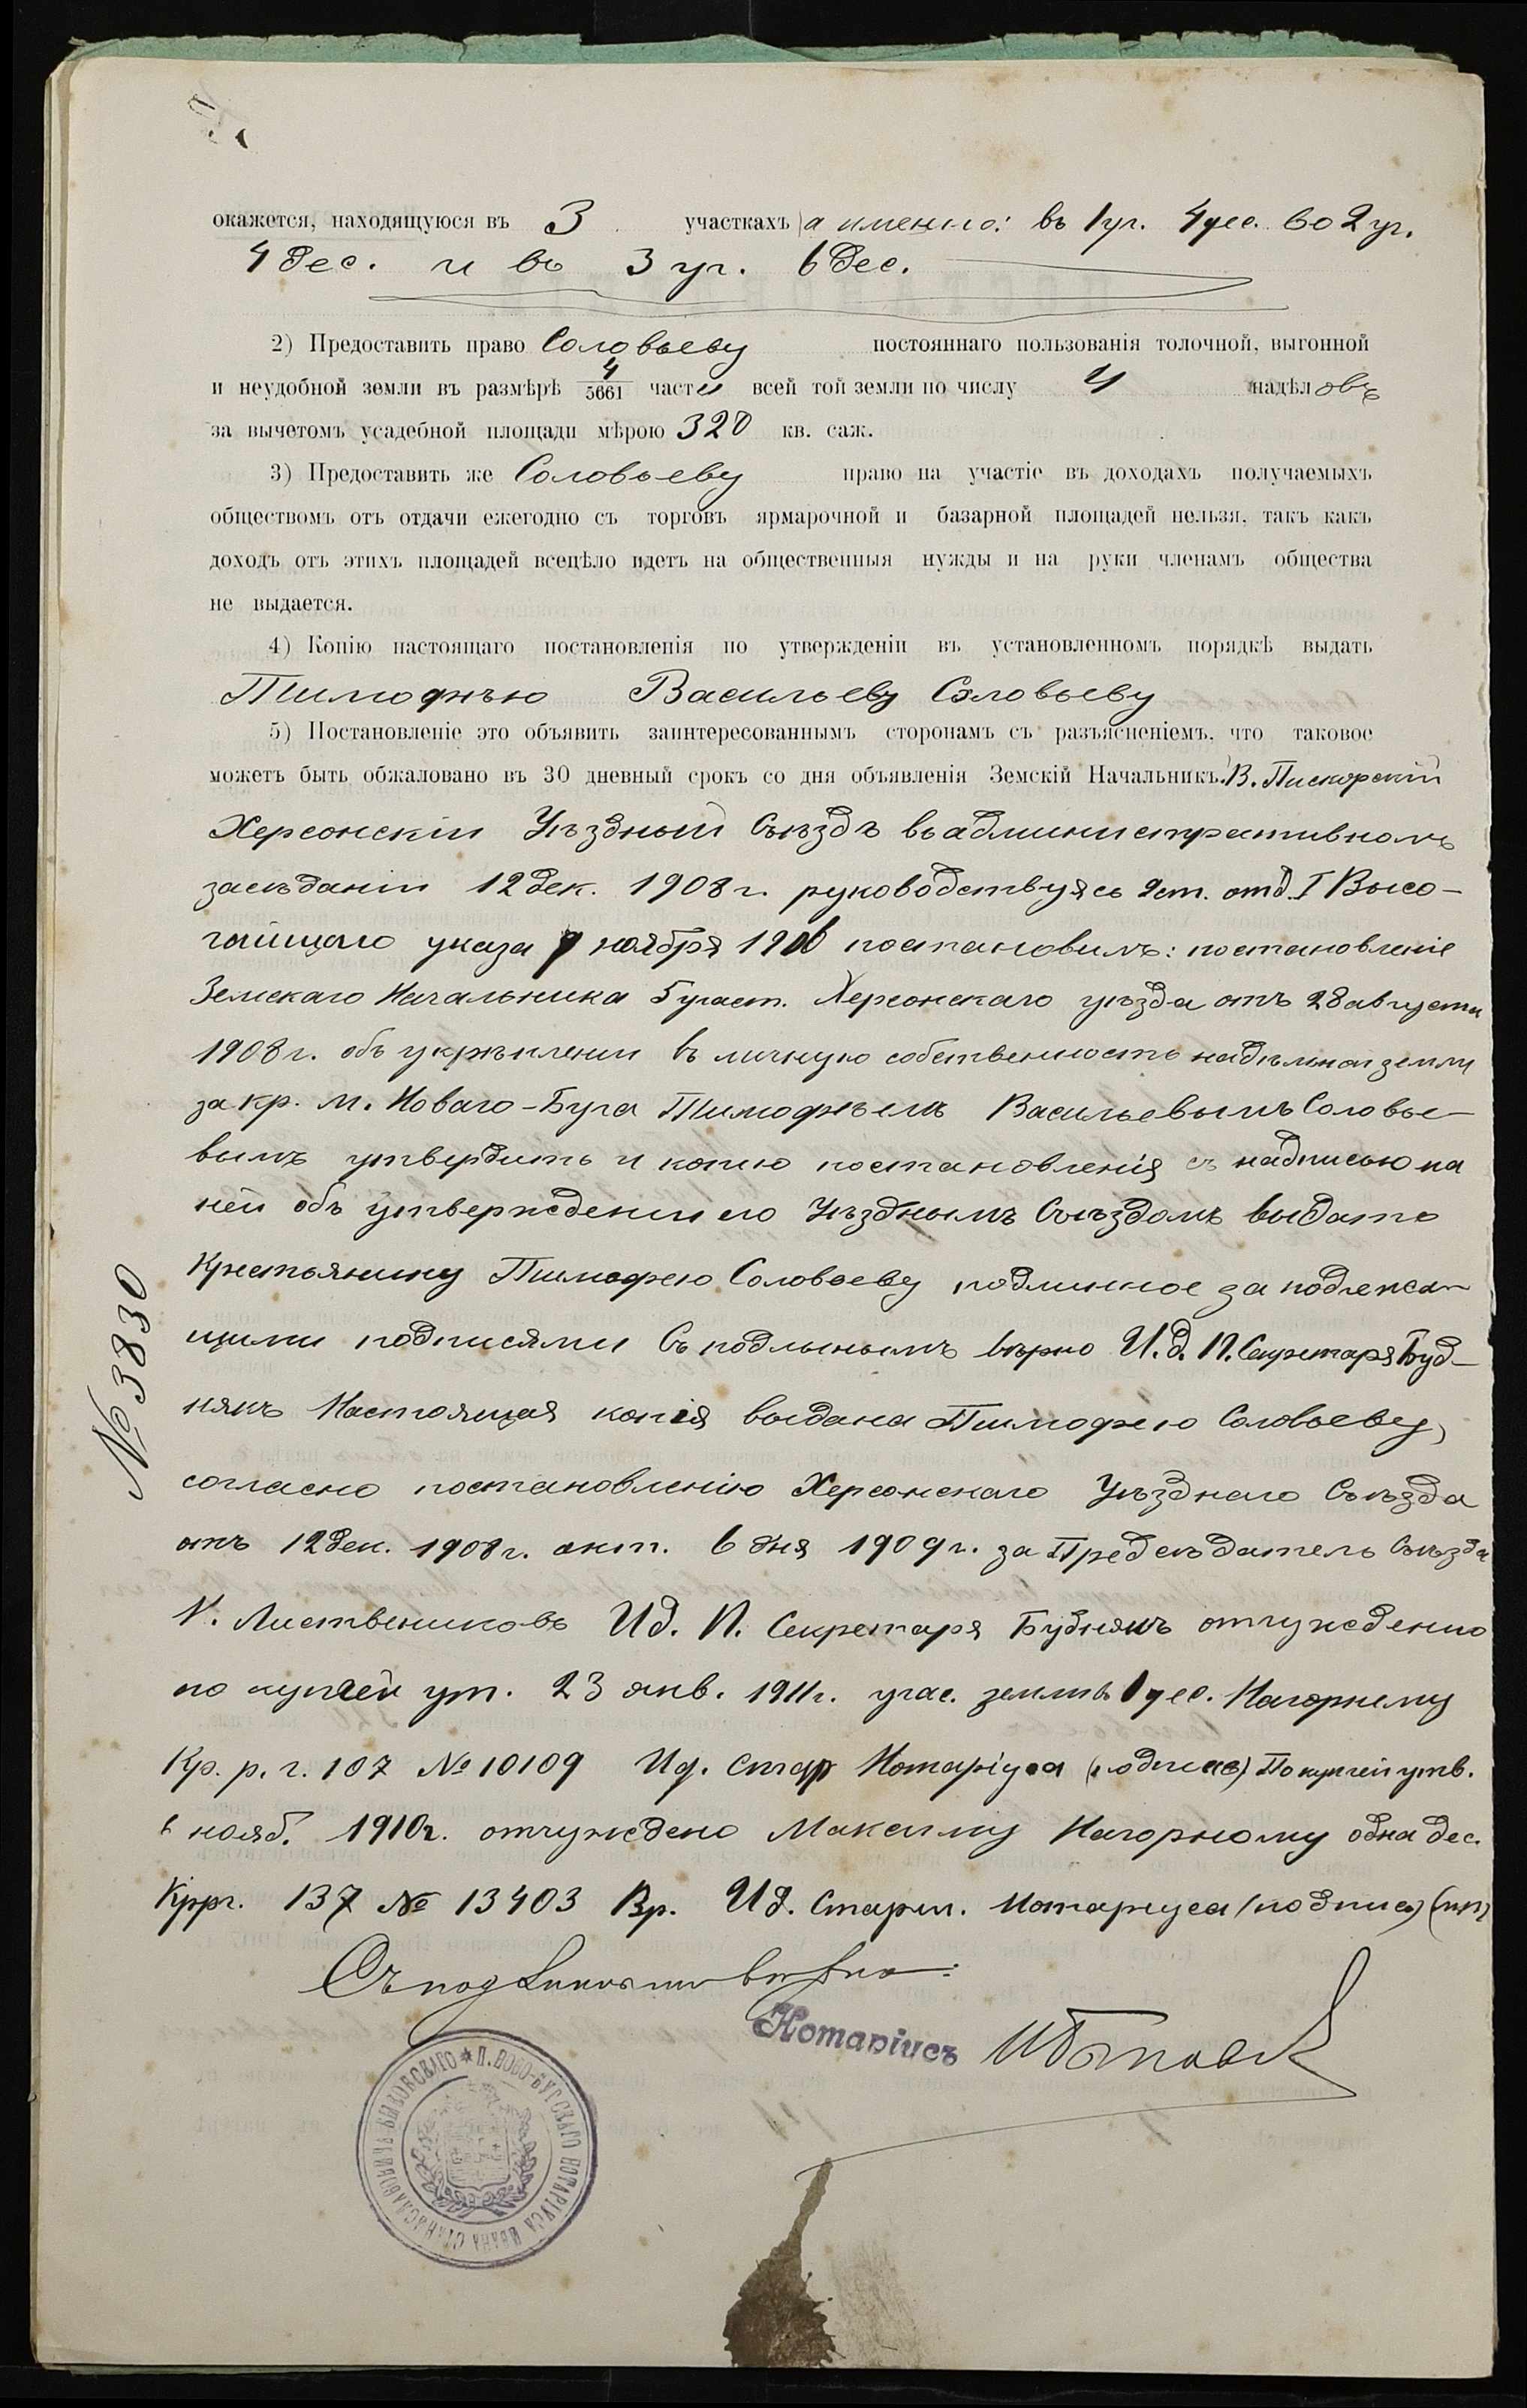 окажется, находящуюся въ 3 участкахъ а именно: въ 1 уч. 4 дес. во 2 уч.
4 дес. и въ 3 уч. 6 дес.
2) Предоставить право Соловьеву постояннаго пользованія толочной, выгонной
и неудобной земли въ размѣрѣ 4/5661 части всей той земли по числу 4 надѣловъ
за вычетомъ усадебной площади мѣрою 320 кв. саж.
3) Предоставить же Соловьеву право на участіе въ доходахъ получаемыхъ
обществомъ отъ отдачи ежегодно съ торговъ ярмарочной и базарной площадей нельзя, такъ какъ
доходъ отъ этихъ площадей всецѣло идетъ на общественныя нужды и на руки членамъ общества
не выдается.
4) Копію настоящаго постановленія по утвержденіи въ установленномъ порядкѣ выдать
Тимофѣю Васильеву Соловьеву
5) Постановленіе это объявить заинтересованнымъ сторонамъ съ разъясненіемъ, что таковое
можетъ быть обжаловано въ 30 дневный срокъ со дня объявленія Земскій Начальникъ: В. Пискорскій
Херсонскій Уѣздный Съѣздъ въ административномъ
засѣданіи 12 дек. 1908 г. руководствуясь 2 ст. отд. I Высо-
чайшаго указа 9 ноября 1906 постановилъ: постановленіе
Земскаго Начальника 5 участ. Херсонскаго уѣзда отъ 28 августа
1908 г. объ укрѣпленіи въ личную собственность надѣльной земли
за кр. м. Новаго-Буга Тимофѣемъ Васильевымъ Соловье-
вымъ утвердить и копію постановленія съ надписью на
ней объ утвержденіи его Уѣзднымъ Съѣздомъ выдать
Крестьянину Тимофею Соловьеву, подлинное за подлежа-
щими подписями Съ подлиннымъ вѣрно И. д. П. Секретаря Буд-
някъ Настоящая копія выдана Тимофею Соловьеву,
согласно постановленію Херсонскаго Уѣзднаго Съѣзда
отъ 12 дек. 1908 г. окт. 6 дня 1909 г. за Предсѣдатель Съѣзда
Листвениковъ Ид. П. Секретаря Будникъ отчуждено
по купчей ут. 23 янв. 1911 г. учас. земли въ 1 дес. Нагорнему
Кр. р. г. 107 № 10109 Ид. Стар Нотаріуса (подпись) По купчей утв.
6 нояб. 1910 г. отчуждено Максиму Нагорному одна дес.
137 № 13403 Вр. Ид. Старш. Нотаріуса (подпись)
Съ подлиннымъ вѣрно:
Нотаріусъ
№ 3830
П. НОВО-БУГСКАГО НОТАРІУСА ИВАНА СТАНИСЛАВОВИЧА